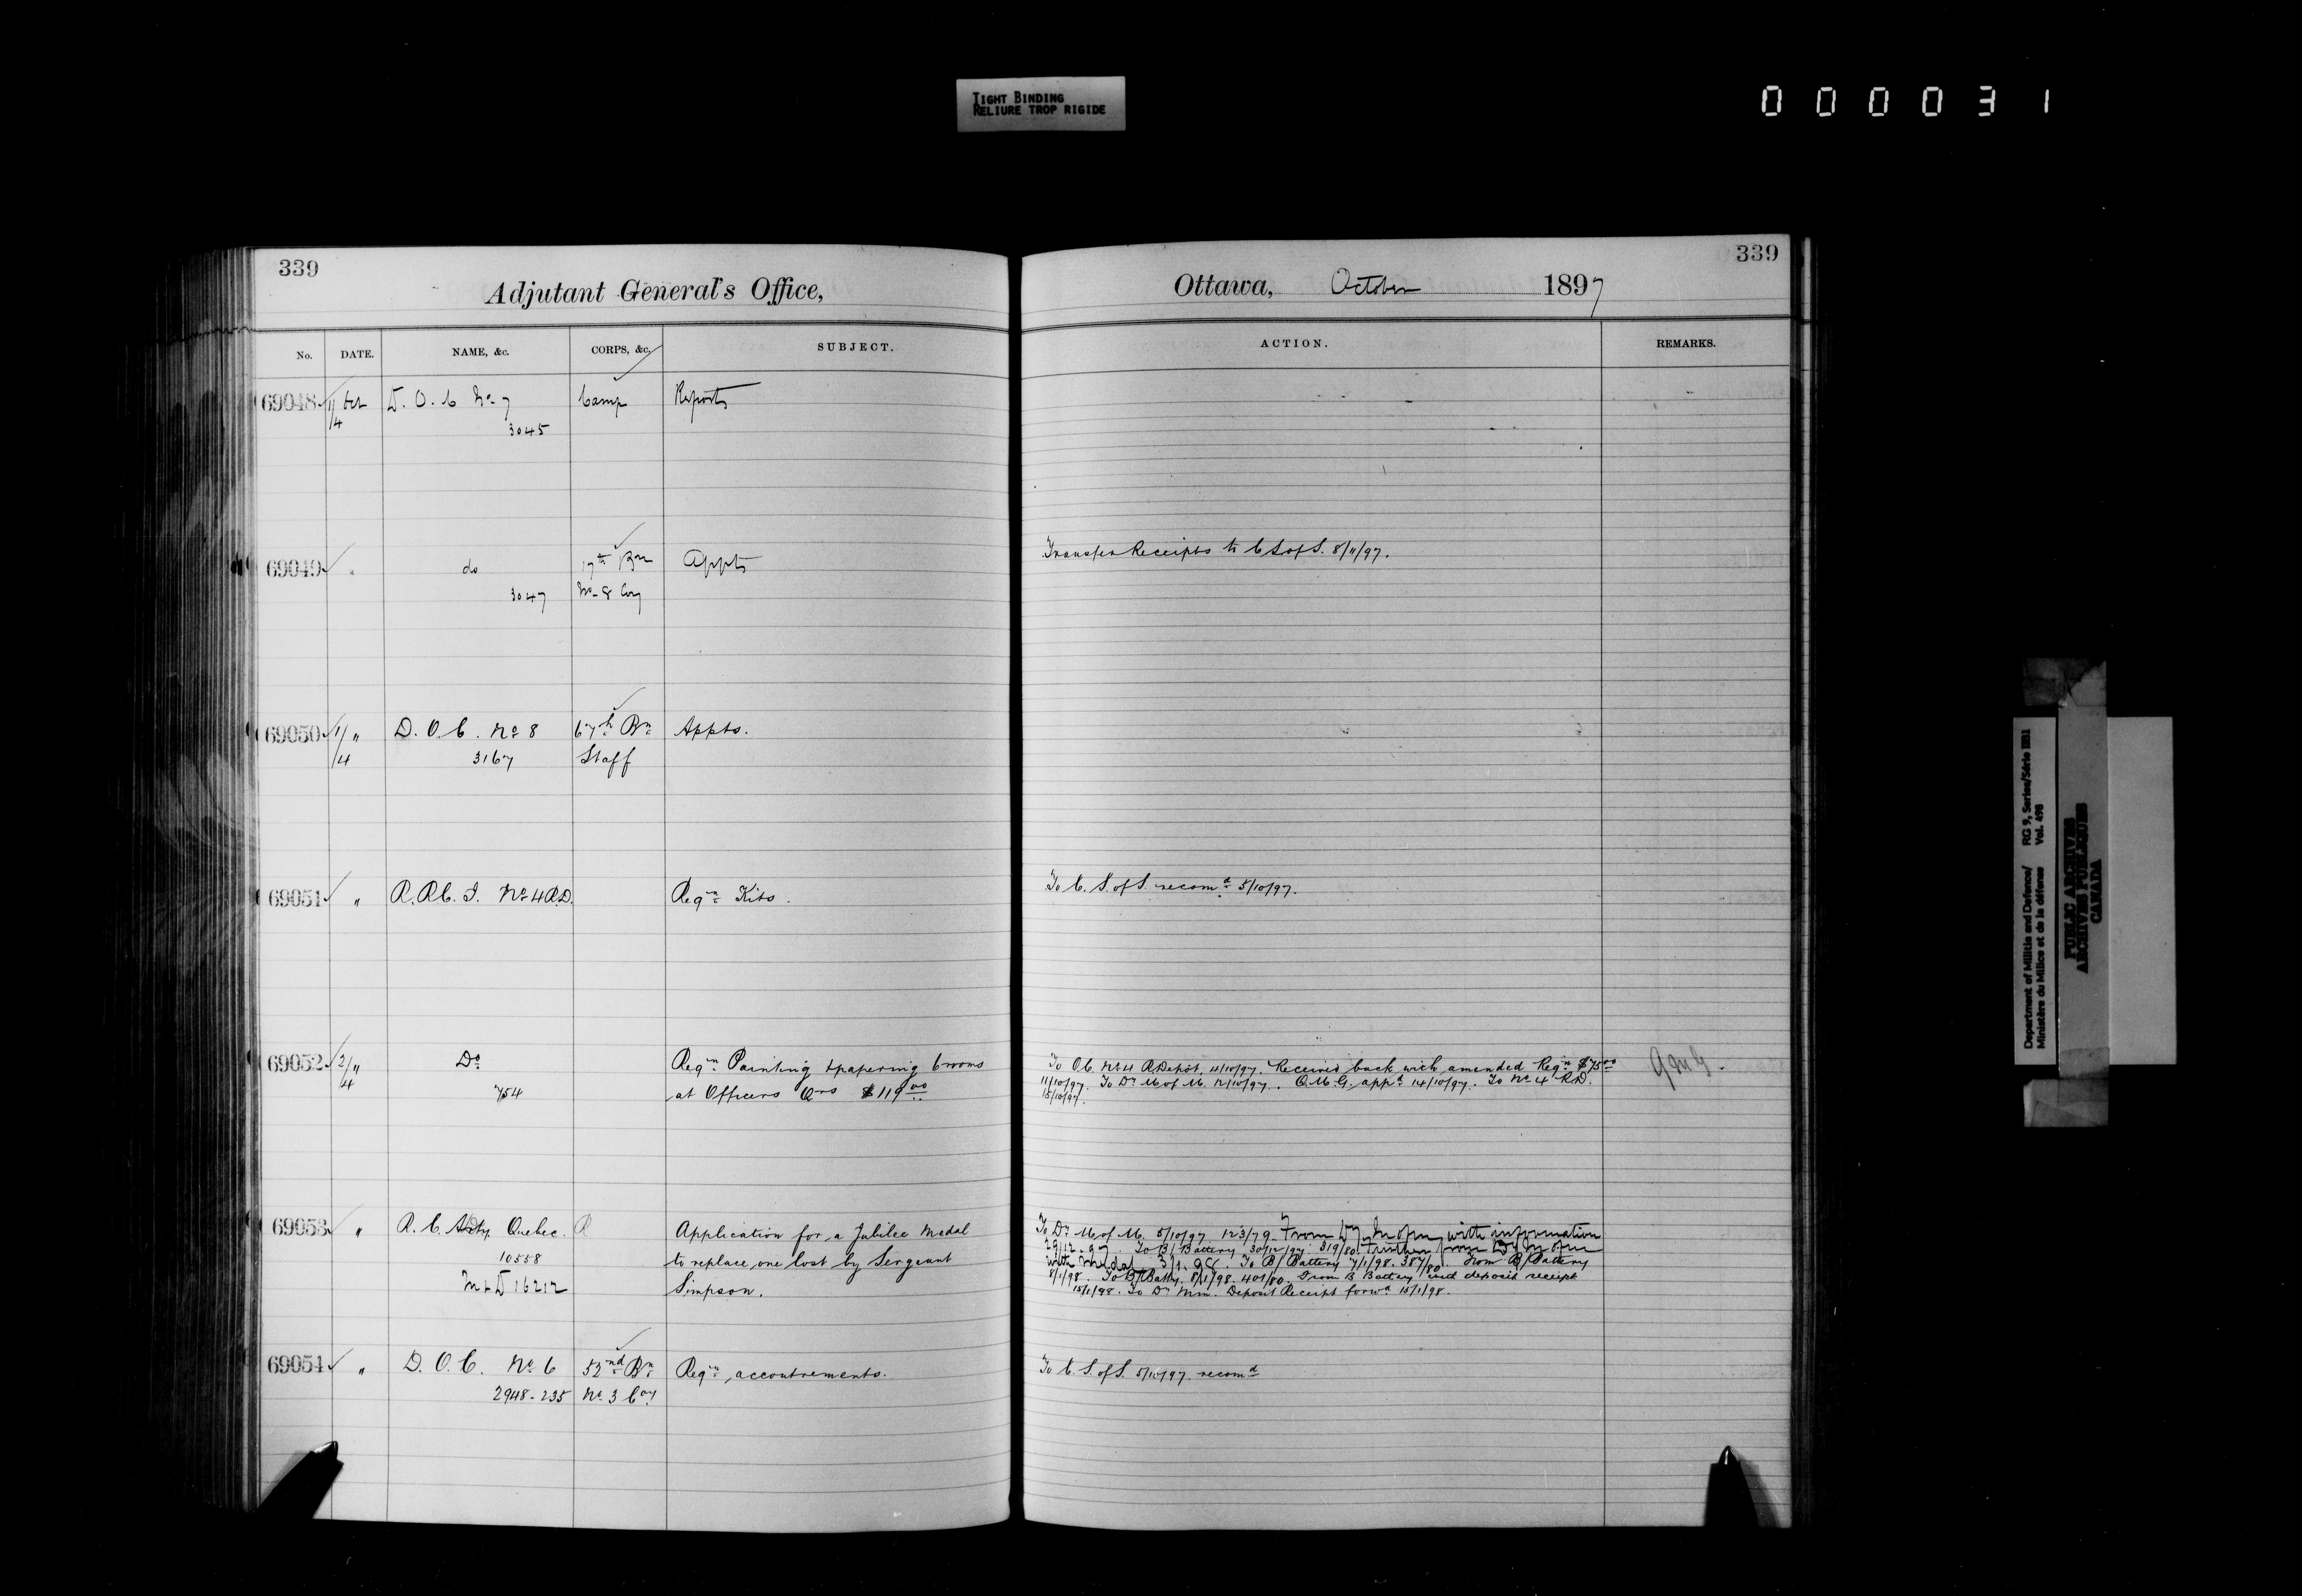 TIGHT BINDING
RELIURE TROP RIGIDE
000031
339
Adjutant General's Office,
No. DATE. NAME, &c. CORPS, &c. SUBJECT.
69048 1/4 Oct D. O. C No 7 Camp Reports
3045
69049 " do 17th Bn Appts
3047 No 8 Coy
69050 1/4 " D. O. C. No 8 67th Bn Appts.
3167 Staff
69051 " R.R.C.I. No 4 R.D. Reqn Kits.
69052 2/4 " Do Reqn Painting & papering 6 rooms
754 at Officers Qrs $119.00
69053 " R. C. Arty Quebec. R Application for a Jubilee Medal
10558 to replace one lost by Sergeant
M & D 16212 Simpson.
69054 " D. O. C. No 6 52nd Bn Reqn accoutrements.
2948-235 No 3 Coy
339
Ottawa, October 1897
ACTION. REMARKS.
Transfer Receipts to C S of S. 8/11/97.
To C. S. of S. recomd 5/10/97.
To O.C. No 4 R. Depôt, 4/10/97. Received back with amended Reqn $75.00
11/10/97. To Dr M of M. 12/10/97. Q.M.G. appd 14/10/97. To No 4 R.D.
15/10/97.
To Dr M of M. 5/10/97. 123/79. From Dy M of M with information
29/12.97. To B/Battery 30/12/97. 319/80. Further from Dy M of M
with medal 3/1.98. To B/Battery 7/1/98. 387/80. From B/Battery
8/1/98. To B/Batty. 8/1/98. 401/80. From B Battery with deposit receipt
15/1/98. To Dr M M. Deposit Receipt forwd 15/1/98.
To C. S. of S. 5/10/97. recomd
Department of Militia and Defence/
Ministère du Milice et de la défense
RG 9, Series/Série IIB1
Vol. 498
PUBLIC ARCHIVES
ARCHIVES PUBLIQUES
CANADA